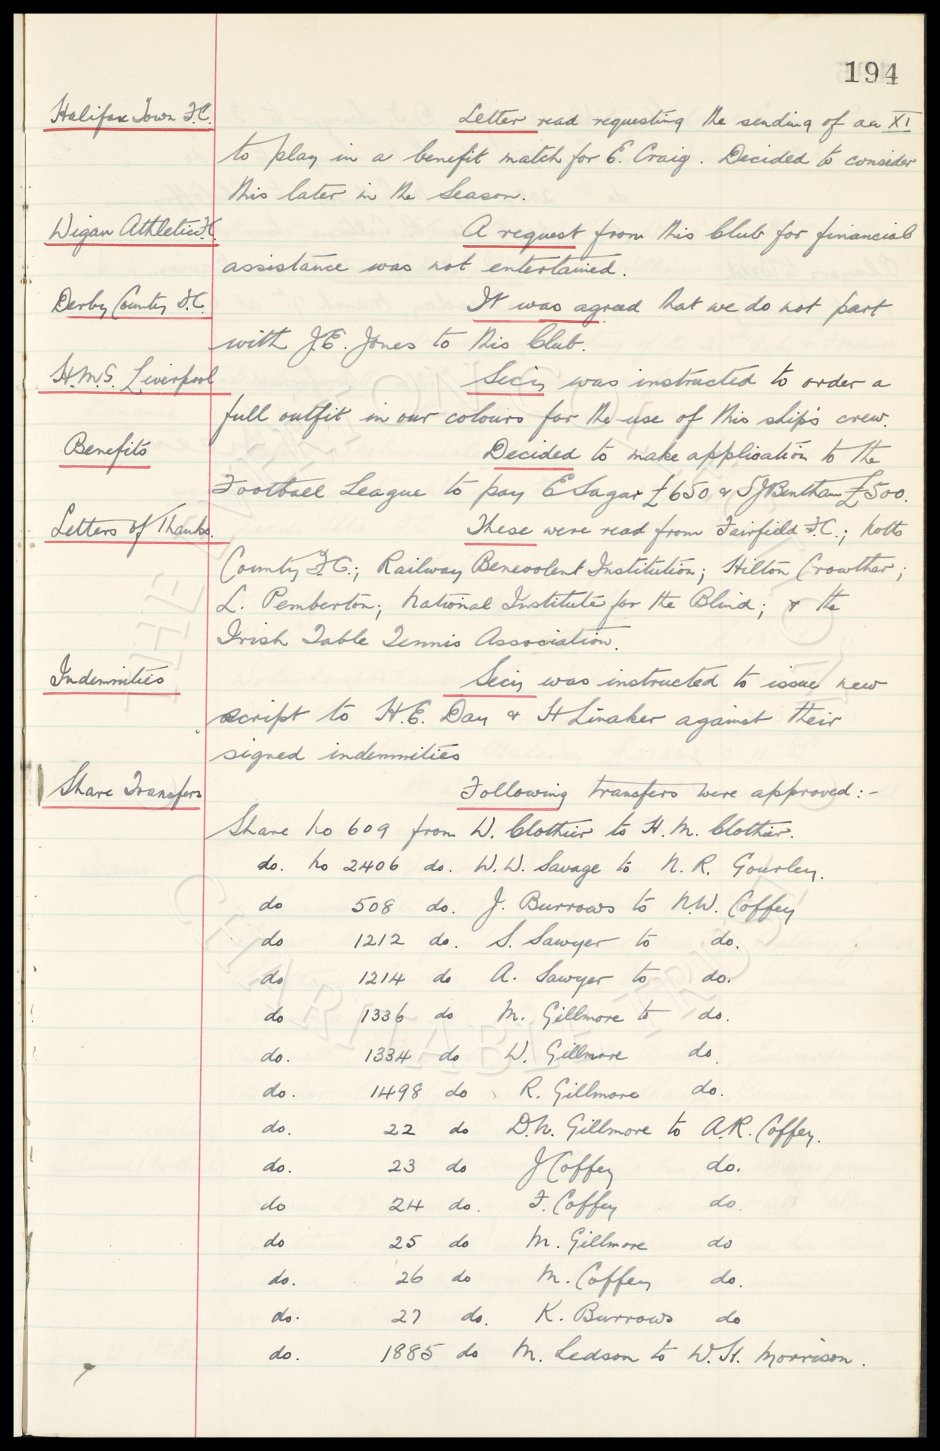 194
Halifax Town F.C. Letter read requesting the sending of an XI
to play in a benefit match for E. Craig. Decided to consider
this later in the Season.
Wigan Athletic F.C. A request from this Club for financial
assistance was not entertained.
Derby County F.C. It was agreed that we do not part
with J.E. Jones to this Club.
H.M.S. Liverpool Secy was instructed to order a
full outfit in our colours for the use of this ship's crew.
Benefits Decided to make application to the
Football League to pay E Sagar £650 & S J Bentham £500.
Letters of Thanks. These were read from Fairfield F.C.; Notts
County F.C.; Railway Benevolent Institution; Hilton Crowther;
L. Pemberton; National Institute for the Blind; & the
Irish Table Tennis Association.
Indemnities Secy was instructed to issue new
script to H.E. Day & H Linaker against their
signed indemnities
Share Transfers Following transfers were approved:-
Share No 609 from W. Clothier to H. M. Clothier.
do. No 2406 do. W.W. Savage to N. R. Gourley.
do 508 do. J. Burrows to N.W. Coffey
do 1212 do. S. Sawyer to do.
do 1214 do A. Sawyer to do.
do 1336 do M. Gillmore to do.
do. 1334 do W. Gillmore do.
do. 1498 do R. Gillmore do.
do. 22 do D.N. Gillmore to A.R. Coffey.
do. 23 do J Coffey do.
do 24 do. F. Coffey do.
do 25 do M. Gillmore do
do. 26 do M. Coffey do.
do. 27 do. K. Burrows do
do. 1885 do M. Ledson to W.H. Morrison.
THE EVERTON COLLECTION
CHARITABLE TRUST